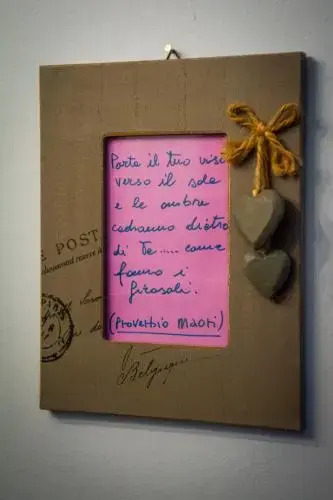 Porta il tuo viso
verso il sole
e le ombre
cadranno dietro
di Te..... come
fanno i
girasoli.
(Proverbio Maori)
E POST
Belgique